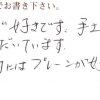 でお書き下さい。
ど好きです。手土
だいています。
にはプレーンがせ